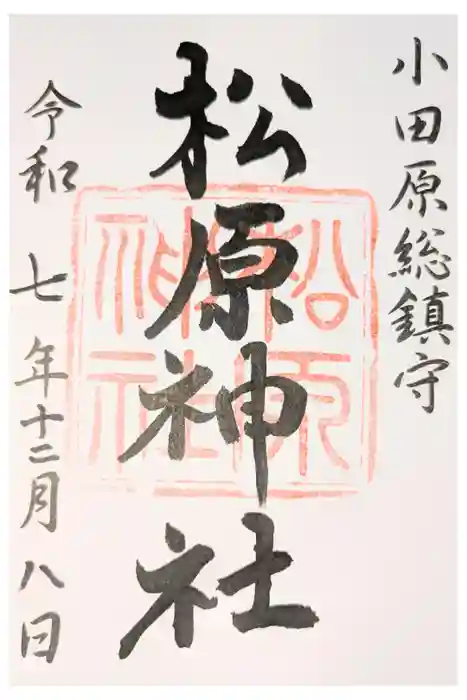 小田原総鎮守
松原神社
松原
神社
令和七年十二月八日